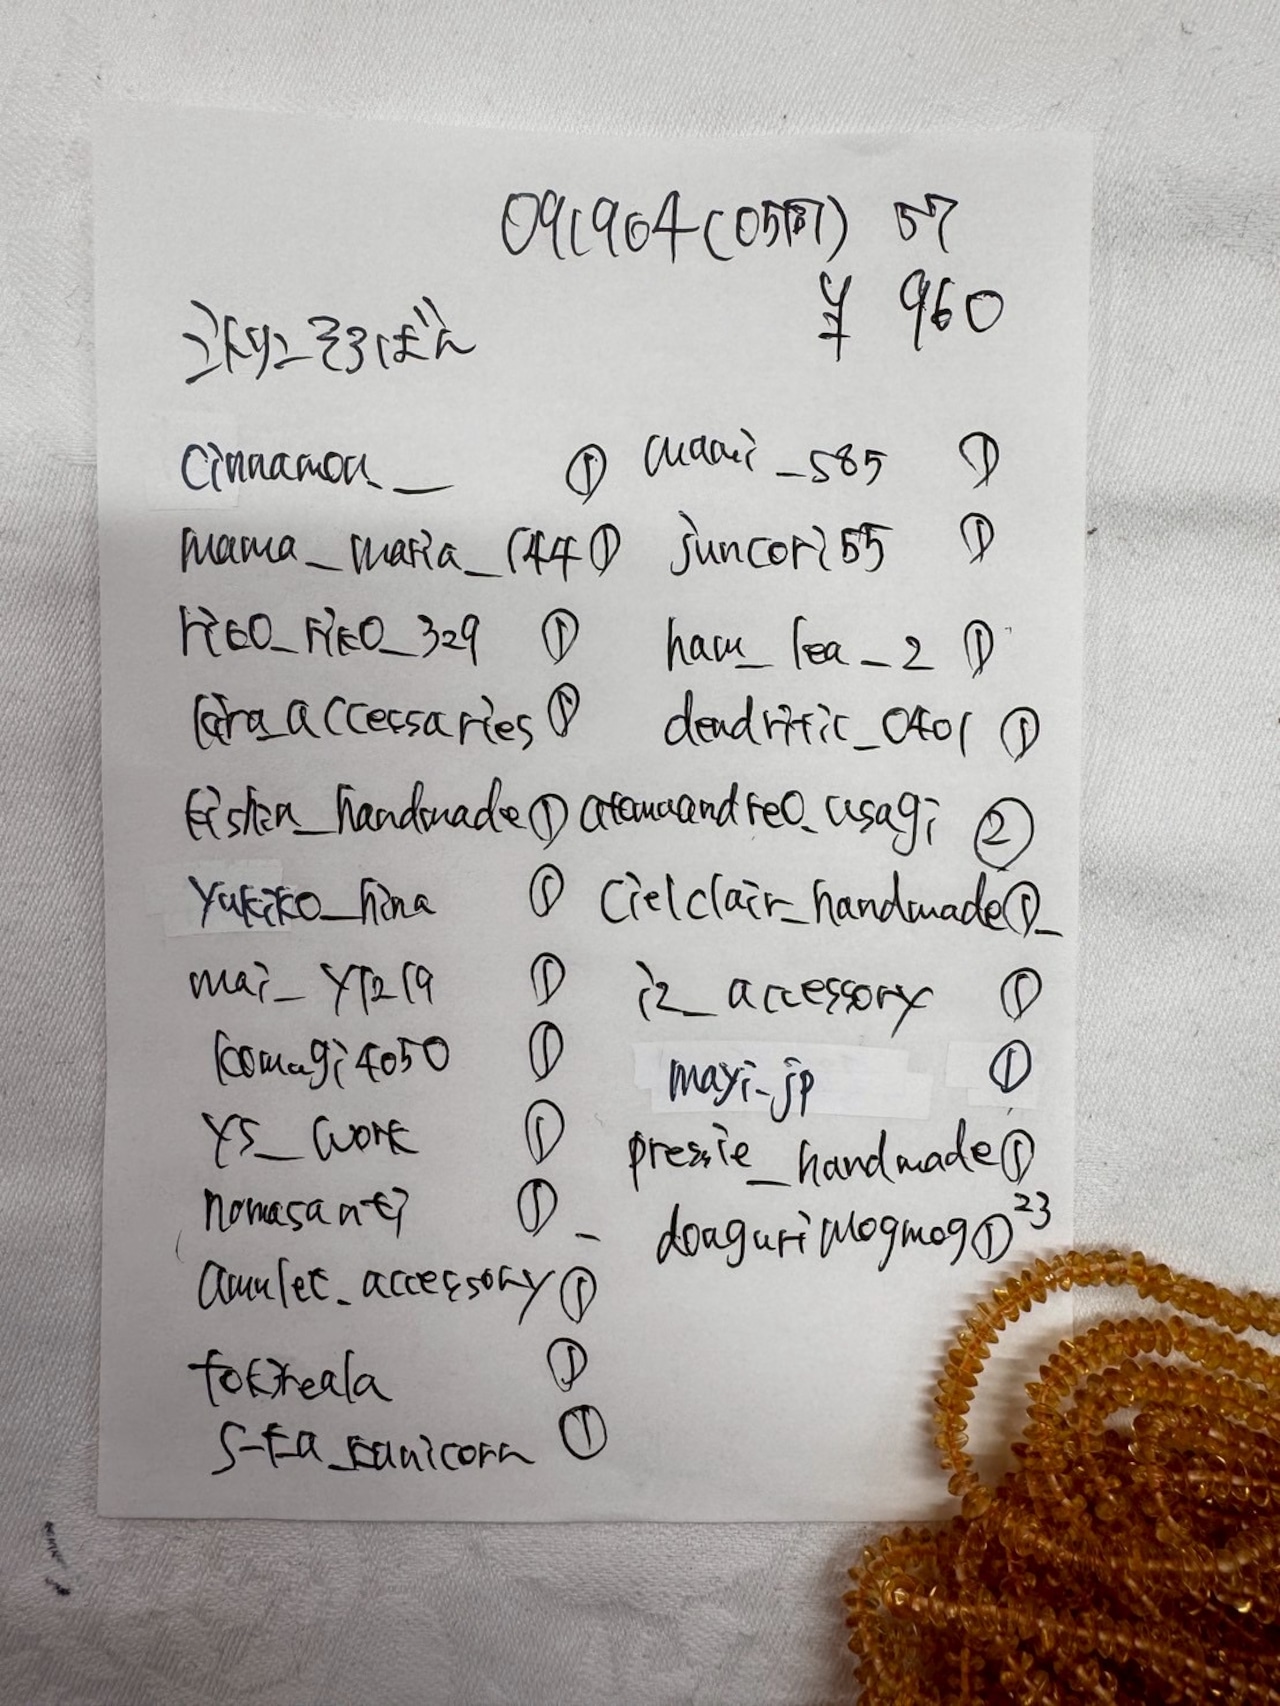 091904(05前) 57
¥ 960
こはく そろばん
Cinnamon__ ①
mama_maria_144 ①
riko_riko_329 ①
kira_accessaries ①
kishin_handmade ①
Yukiko_hina ①
mai_y1219 ①
komagi4050 ①
YS_work ①
nomasanti ① _
amulet_accessory ①
tokireala ①
S-ka_kunicorn ①
mami_585 ①
juncori55 ①
ham_lea_2 ①
dendritic_0401 ①
atomuandreo_usagi ②
Cielclair_handmade ①_
i2_accessory ①
mayi_jp ①
pressie_handmade ①
donguri mogmog ① 23